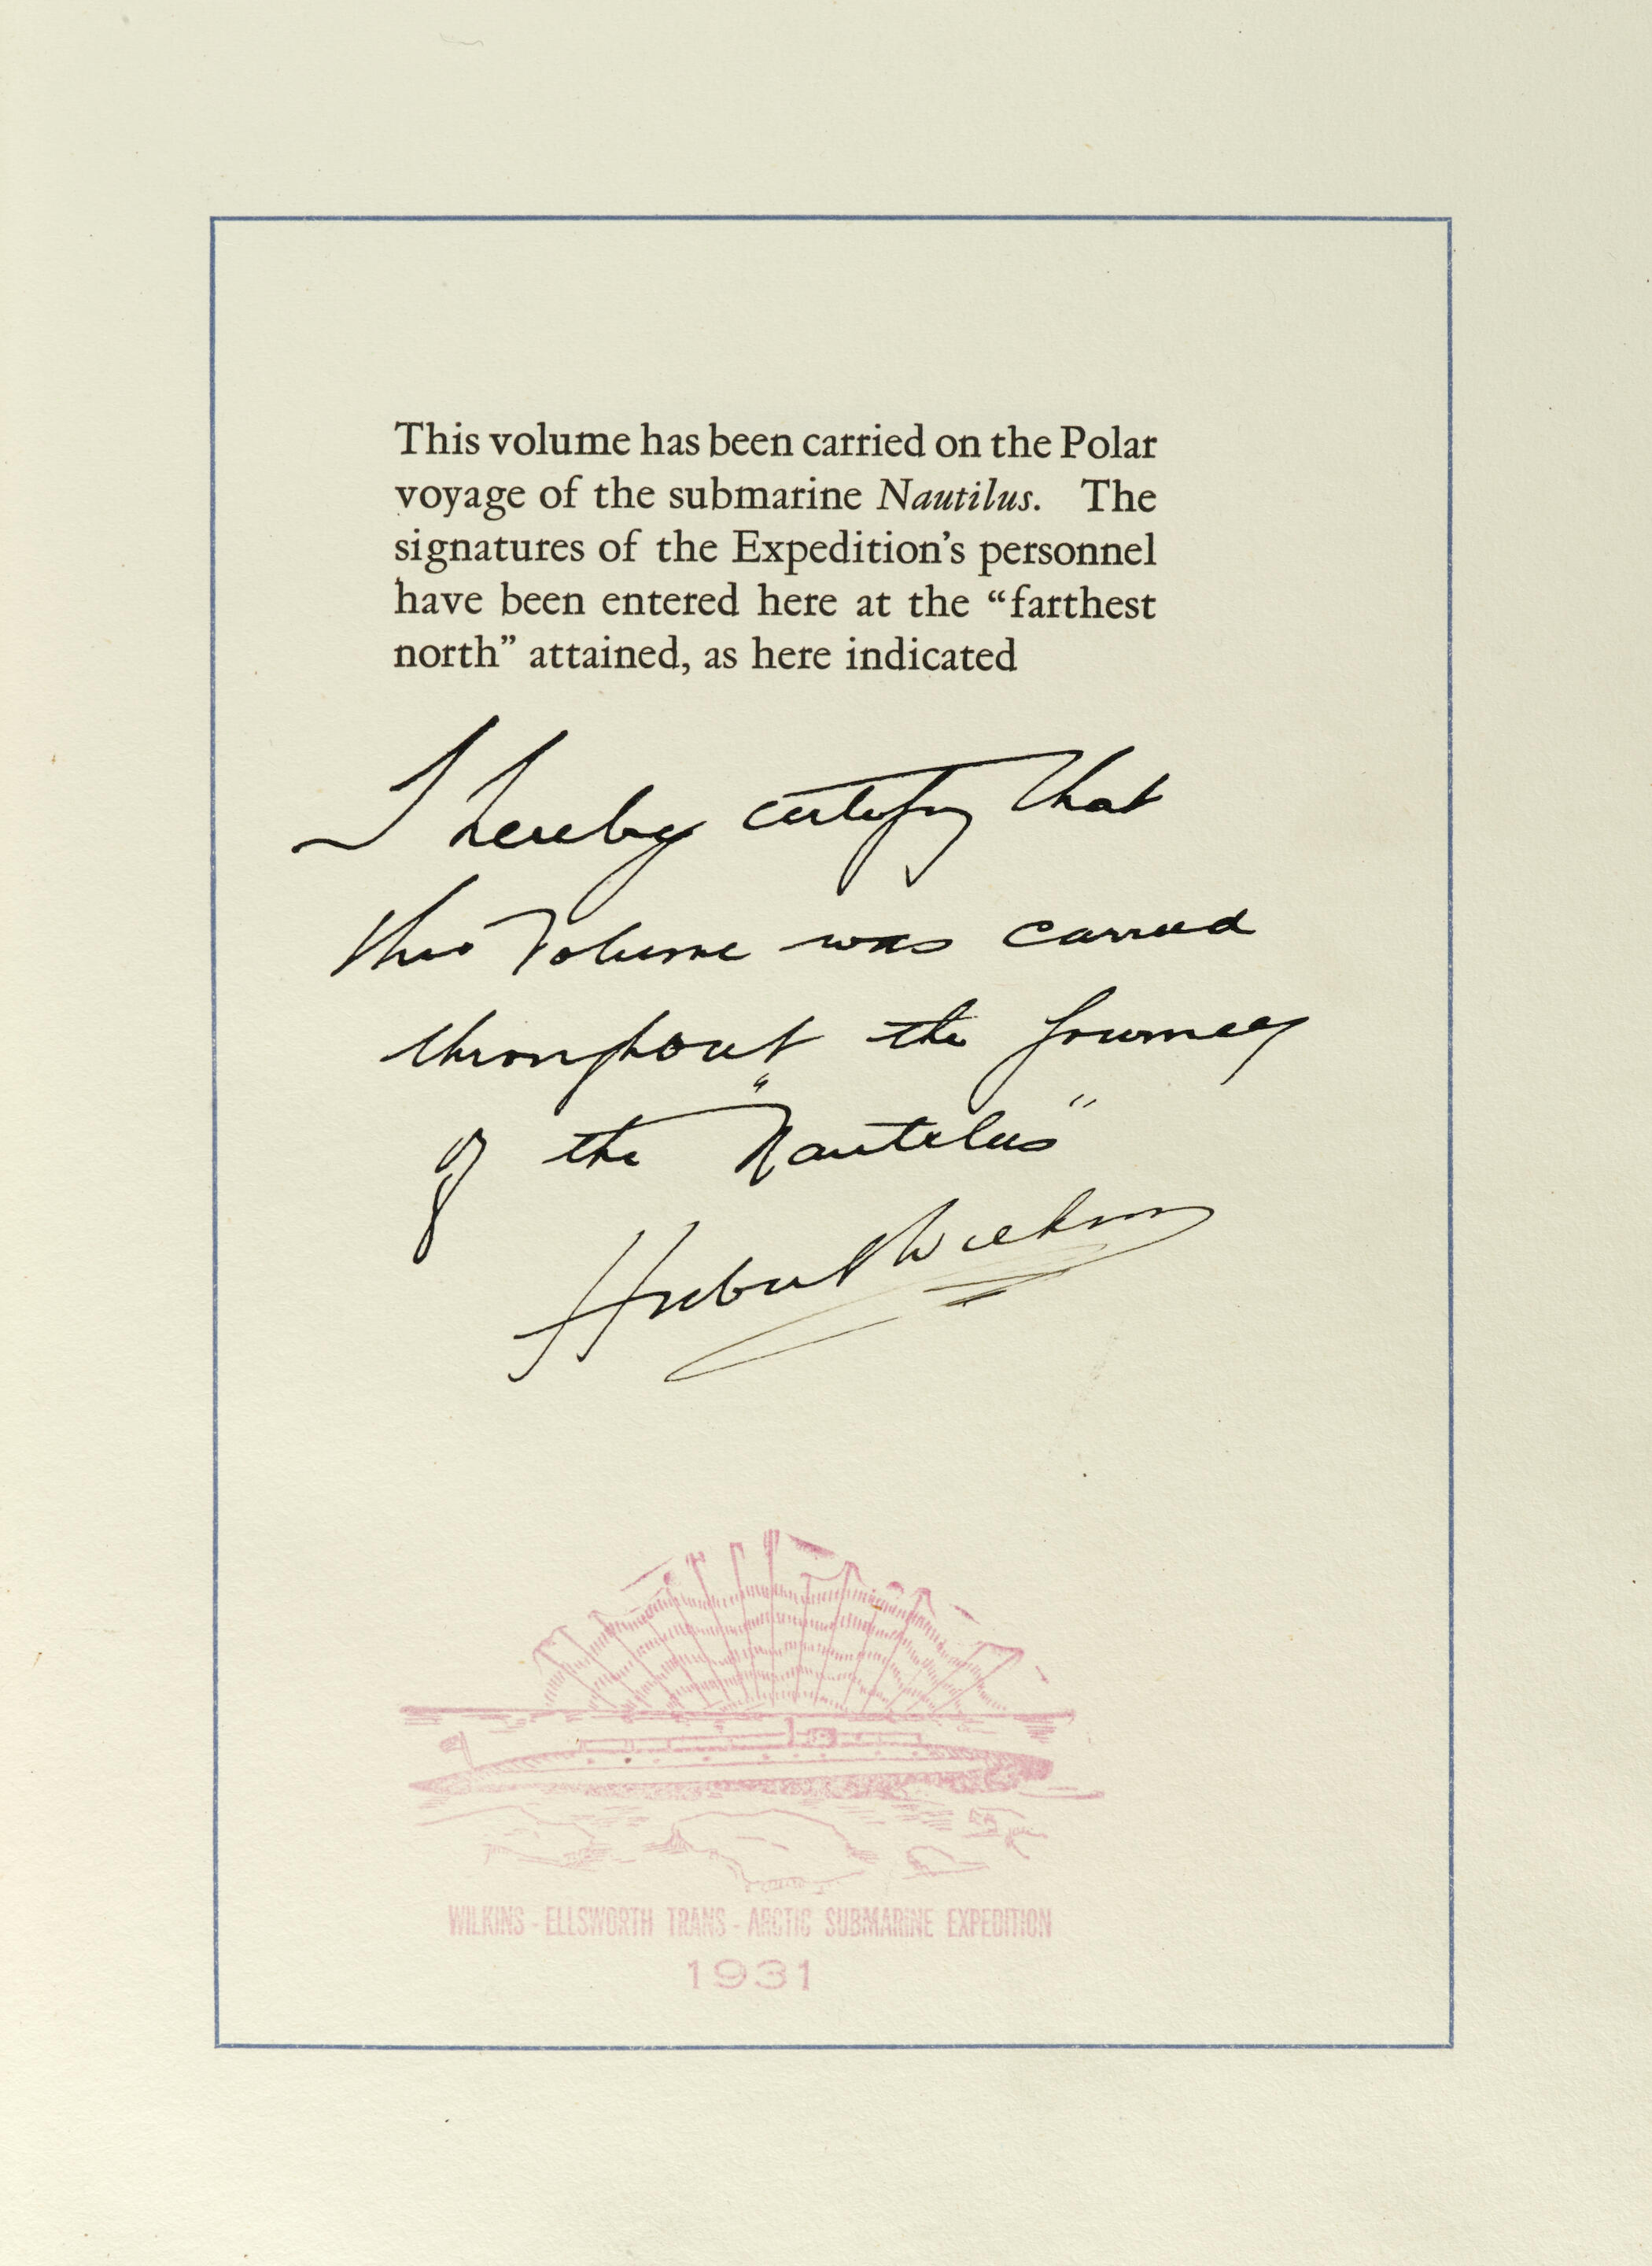 This volume has been carried on the Polar
voyage of the submarine Nautilus. The
signatures of the Expedition's personnel
have been entered here at the "farthest
north" attained, as here indicated
I hereby certify that
this Volume was carried
throughout the Journey
of the "Nautilus"
Hubert Wilkins
WILKINS - ELLSWORTH TRANS - ARCTIC SUBMARINE EXPEDITION
1931